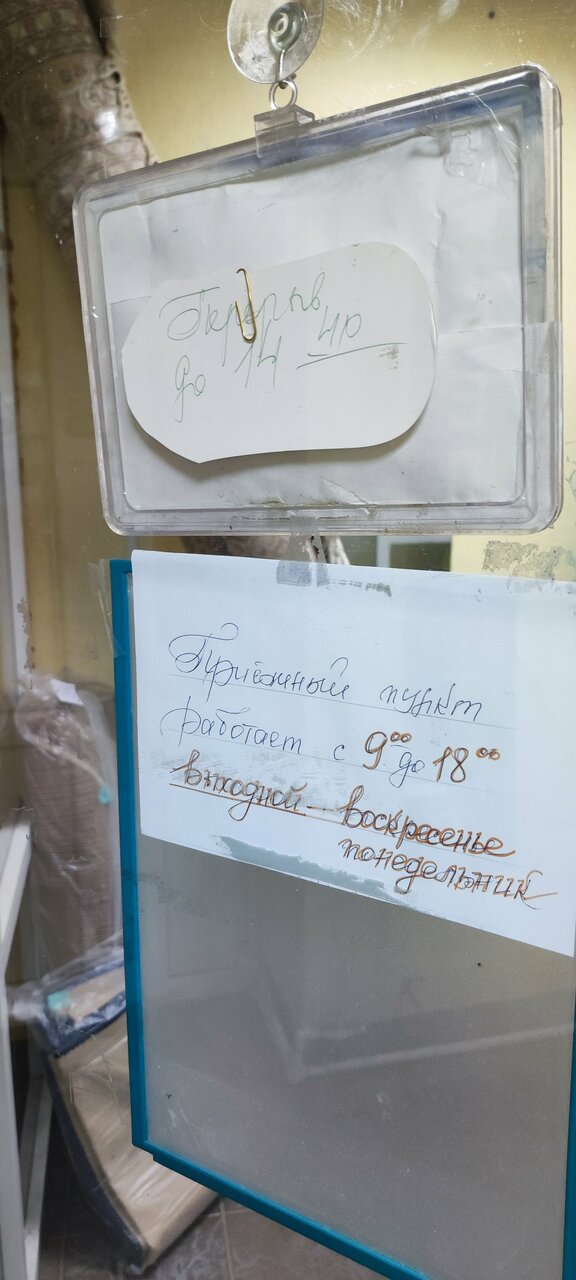 Перерыв
до 14 40
Приёмный пункт
работает с 9 00 до 18 00
выходной - воскресенье
понедельник